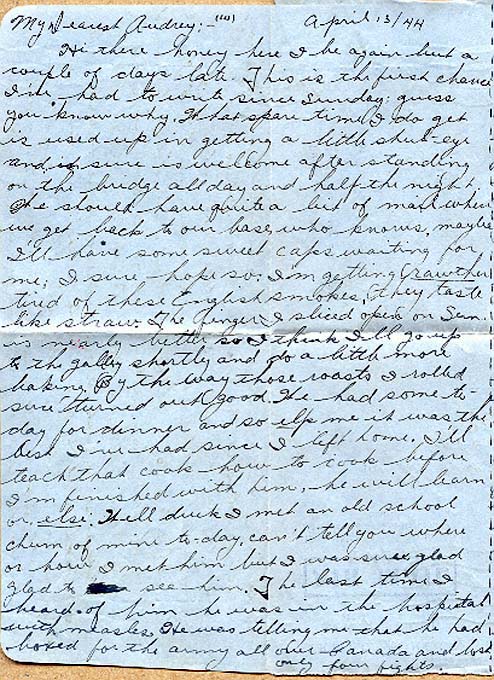 My Dearest Audrey:- "(10)" April 13/44
Hi there honey here I be again but a
couple of days late. This is the first chance
I've had to write since Sunday; guess
you know why. What spare time I do get
is used up in getting a little shut-eye
and it sure is welcome after standing
on the bridge all day and half the night.
We should have quite a bit of mail when
we get back to our base, who knows, maybe
I'll have some sweet caps waiting for
me; I sure hope so. I'm getting rawther
tired of these English smokes; they taste
like straw. The finger I sliced open on Sun.
is nearly better so I think I'll go up
to the galley shortly and do a little more
baking. By the way those roasts I rolled
sure turned out good. We had some to-
day for dinner and so elp me it was the
best I've had since I left home. I'll
teach that cook how to cook before
I'm finished with him, he will learn
or else. Well duck I met an old school
chum of mine to-day, can't tell you where
or how I met him but I was sure glad
glad to see him. The last time I
heard of him he was in the hospital
with measles. He was telling me that he had
boxed for the army all over Canada and lost
only four fights.